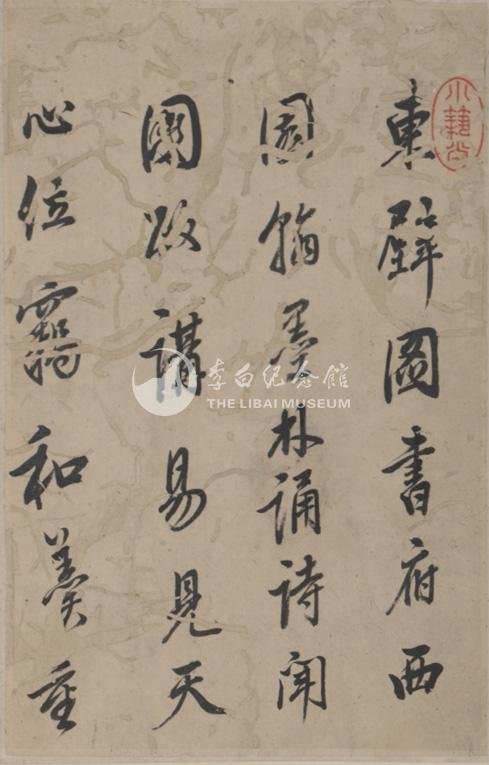 東壁圖書府西
園翰墨林誦詩聞
國政講易見天
心位竊和羹重
李白纪念館
THE LIBAI MUSEUM